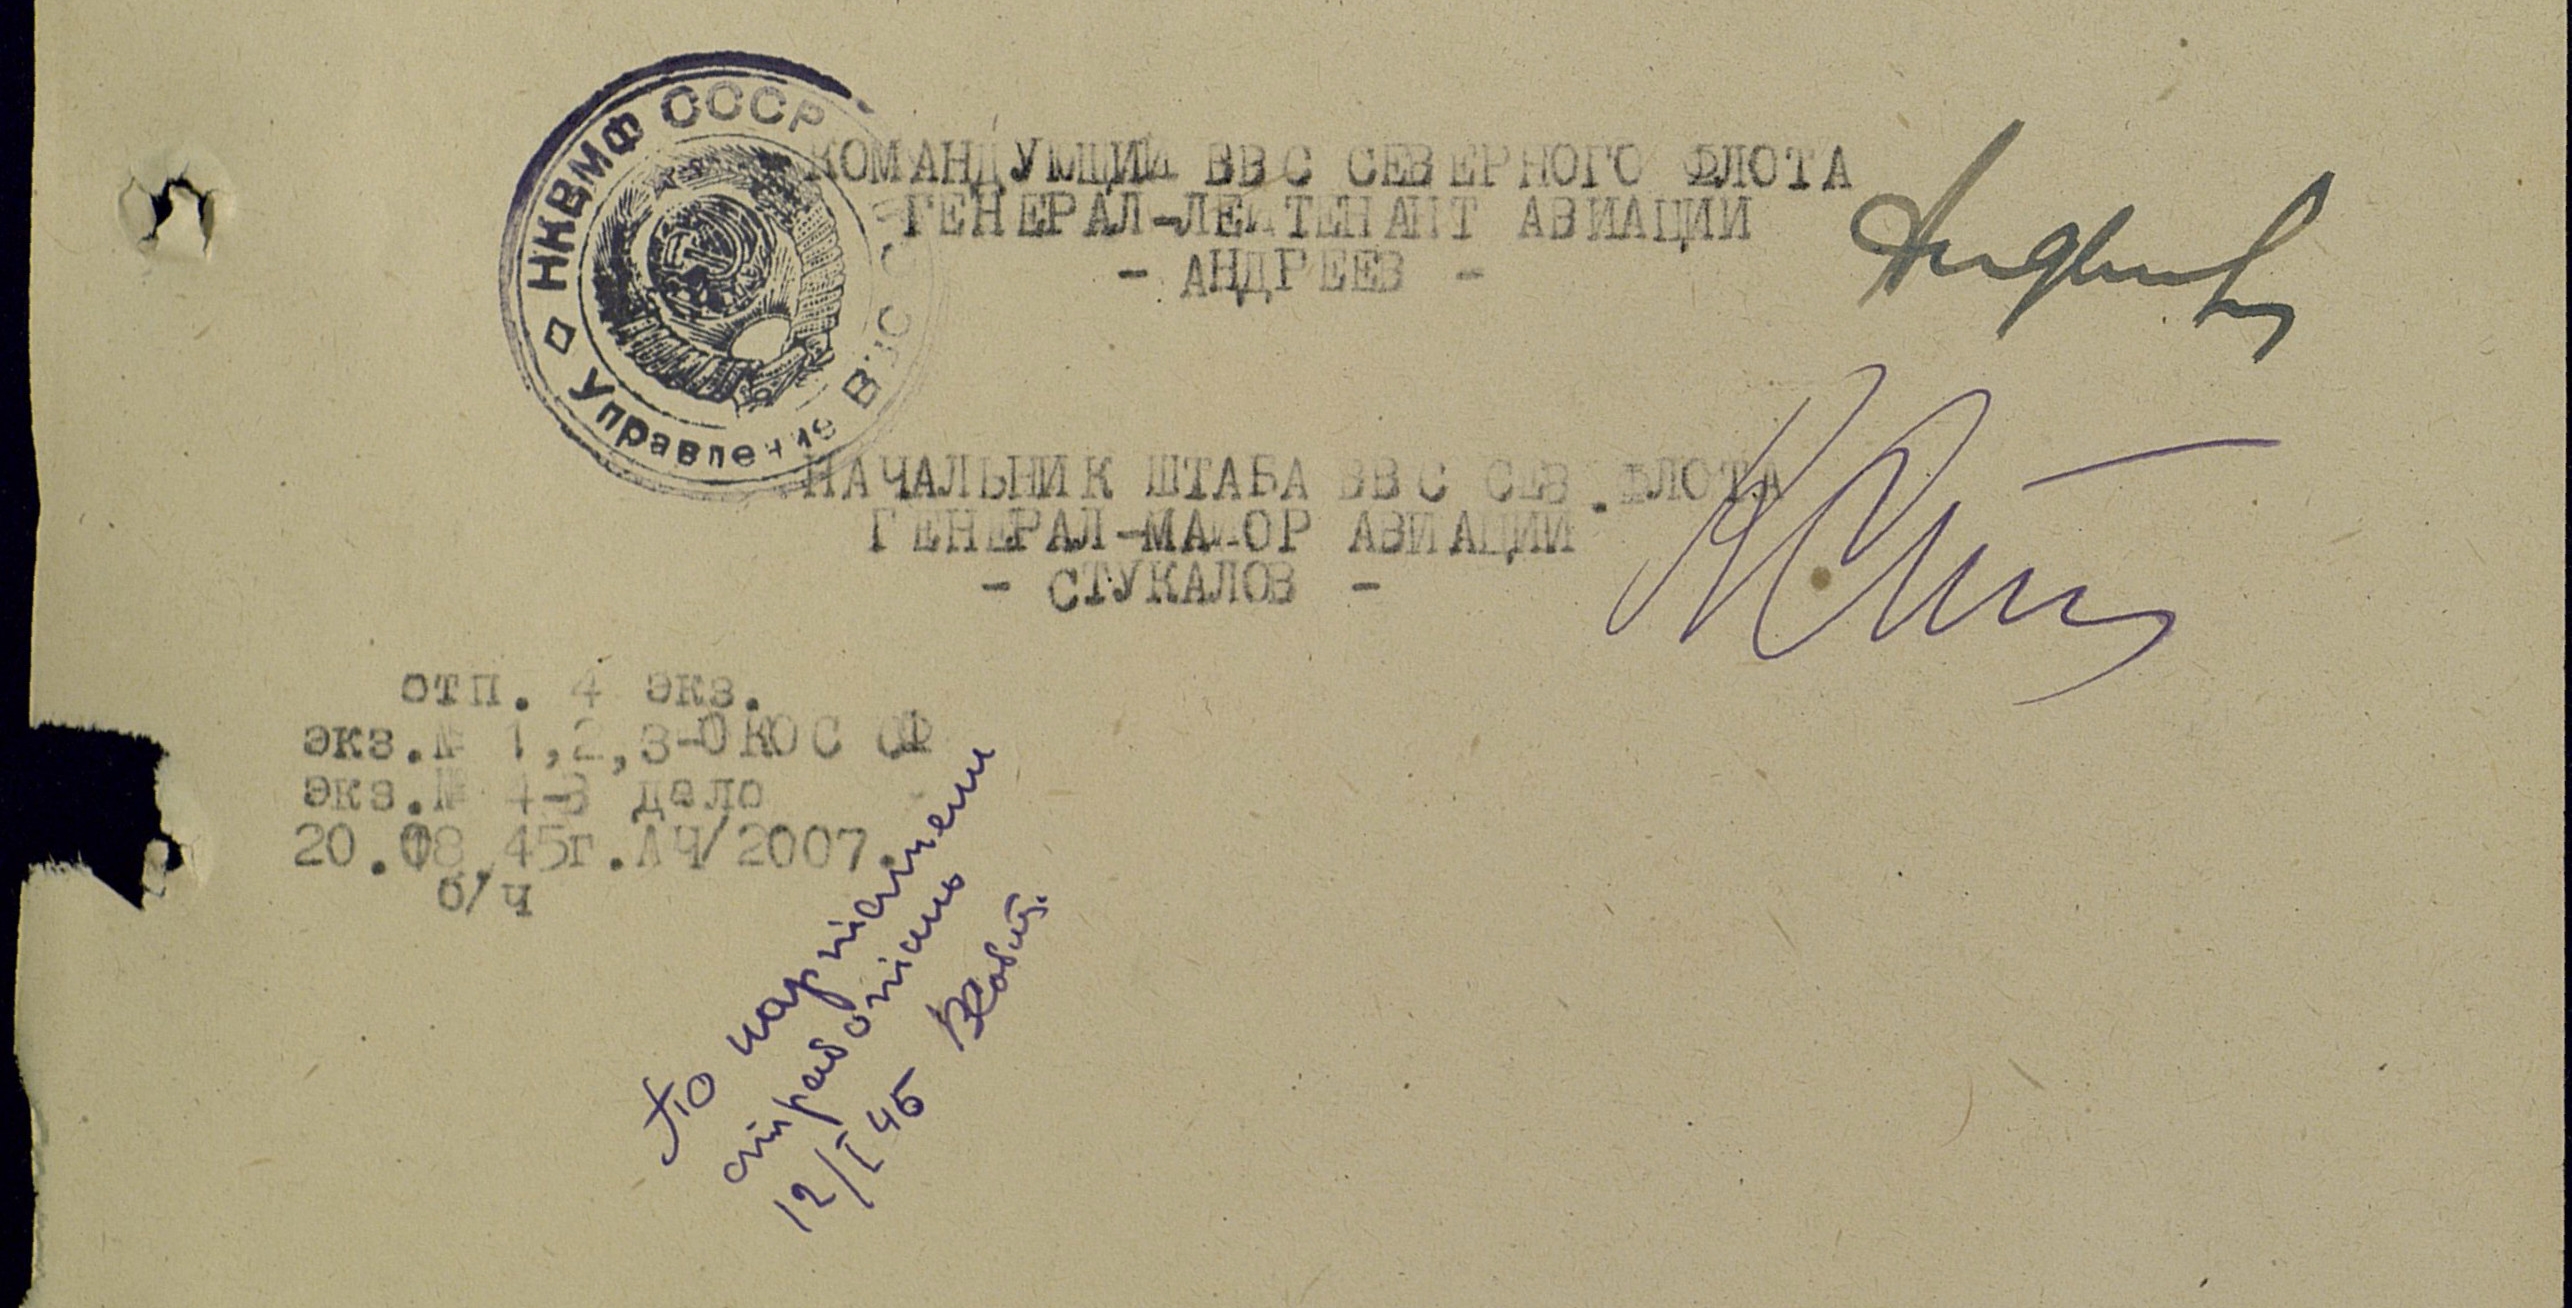 НКВМФ СССР
Управление ВВС С
КОМАНДУЮЩИЙ ВВС СЕВЕРНОГО ФЛОТА
ГЕНЕРАЛ-ЛЕЙТЕНАНТ АВИАЦИИ
- АНДРЕЕВ -
НАЧАЛЬНИК ШТАБА ВВС СЕВ.ФЛОТА
ГЕНЕРАЛ-МАЙОР АВИАЦИИ
- СТУКАЛОВ -
отп. 4 экз.
экз.№ 1,2,3-ОКОС СФ
экз.№ 4-В дело
20.08.45г.ЛЧ/2007.
б/ч
По картотеки
отработать
12/I 45